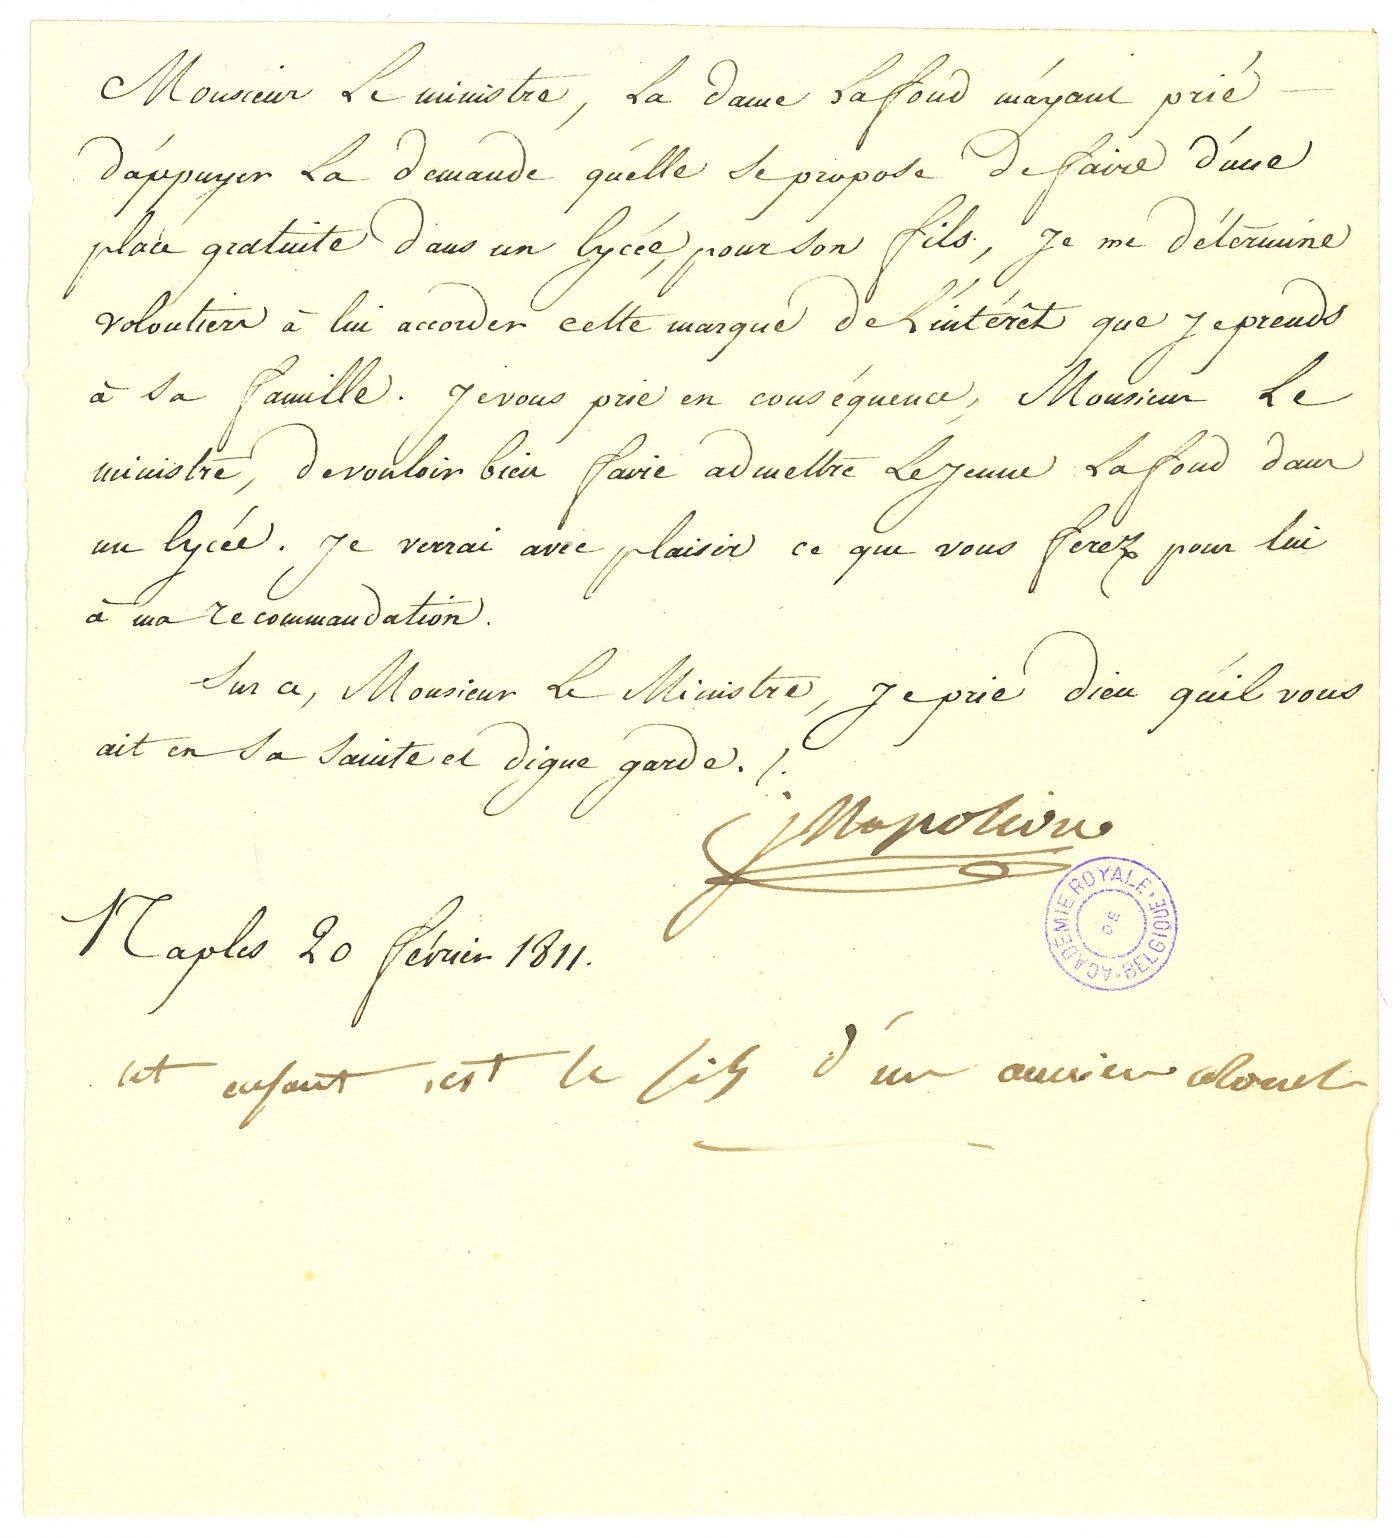 Monsieur Le ministre, La dame Lafond m'ayant prié
d'appuyer La demande qu'elle se propose de faire d'une
place gratuite dans un lycée, pour son fils, Je me détermine
volontiers à lui accorder cette marque de L'intérêt que Je prends
à Sa famille. Je vous prie en conséquence, Monsieur Le
ministre, de vouloir bien favie admettre Le Jeune Lafond dans
un lycée. Je verrai avec plaisir ce que vous ferez pour lui
à ma recommandation.
Sur ce, Monsieur Le Ministre, Je prie dieu qu'il vous
ait en Sa Sainte et digne garde. /.
J Napoléon
ACADÉMIE ROYALE • BELGIQUE •
DE
Naples 20 février 1811.
cet enfant est le fils d'un ancien colonel